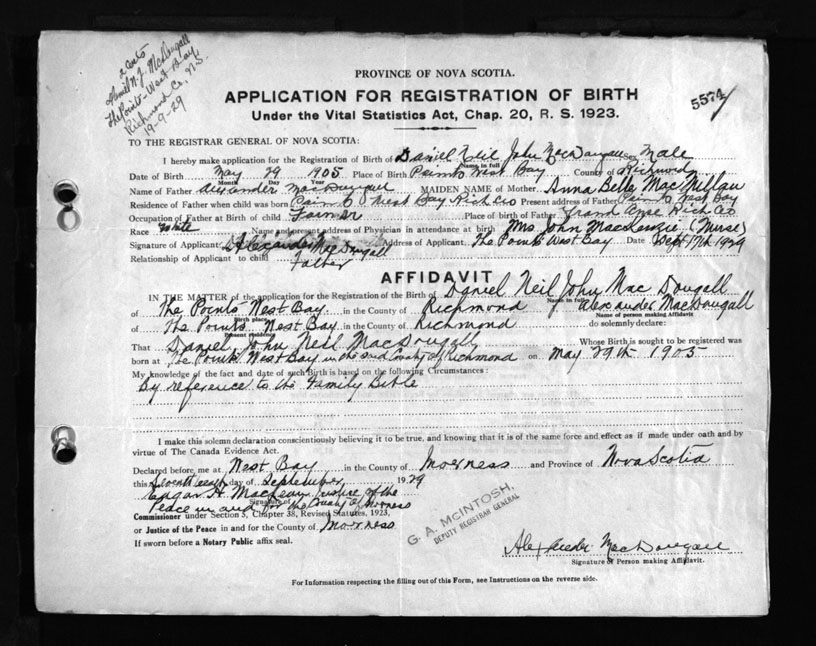 Sent to
Daniel N. J. McDougall
The Points - West Bay,
Richmond Co., N.S.
19-9-29
PROVINCE OF NOVA SCOTIA.
5574
APPLICATION FOR REGISTRATION OF BIRTH
Under the Vital Statistics Act, Chap. 20, R. S. 1923.
TO THE REGISTRAR GENERAL OF NOVA SCOTIA:
I hereby make application for the Registration of Birth of Daniel Neil John MacDougall Sex Male
Name in full
Date of Birth May 29 1905 Place of Birth Points West Bay County of Richmond
Month Day Year
Name of Father Alexander MacDougall MAIDEN NAME of Mother Anna Belle MacMillan
Residence of Father when child was born Points West Bay Rich Co Present address of Father Points West Bay
Occupation of Father at Birth of child Farmer Place of birth of Father Grand Anse Rich Co
Race White Name and present address of Physician in attendance at birth Mrs John MacKenzie (Nurse)
Signature of Applicant Alexander MacDougall Address of Applicant The Points West Bay Date Sept 17th 1929
Relationship of Applicant to child Father
AFFIDAVIT
IN THE MATTER of the application for the Registration of the Birth of Daniel Neil John Mac Dougall
Name in full
of The Points West Bay in the County of Richmond I, Alexander MacDougall
Birth place Name of person making Affidavit
of The Points West Bay in the County of Richmond do solemnly declare:
Present residence
That Daniel John Neil MacDougall Whose Birth is sought to be registered was
born at The Points West Bay in the said County of Richmond on May 29th 1905
My knowledge of the fact and date of such Birth is based on the following Circumstances:
By reference to the Family Bible
I make this solemn declaration conscientiously believing it to be true, and knowing that it is of the same force and effect as if made under oath and by
virtue of The Canada Evidence Act.
Declared before me at West Bay in the County of Inverness and Province of Nova Scotia
this Seventeenth day of September, 1929
Edgar H. MacLean Justice of the
Signature of
Peace in and for the County of Inverness
Commissioner under Section 5, Chapter 38, Revised Statutes, 1923,
or Justice of the Peace in and for the County of Inverness
If sworn before a Notary Public affix seal.
G. A. MCINTOSH,
DEPUTY REGISTRAR GENERAL
Alexander MacDougall
Signature of Person making Affidavit.
For Information respecting the filling out of this Form, see Instructions on the reverse side.